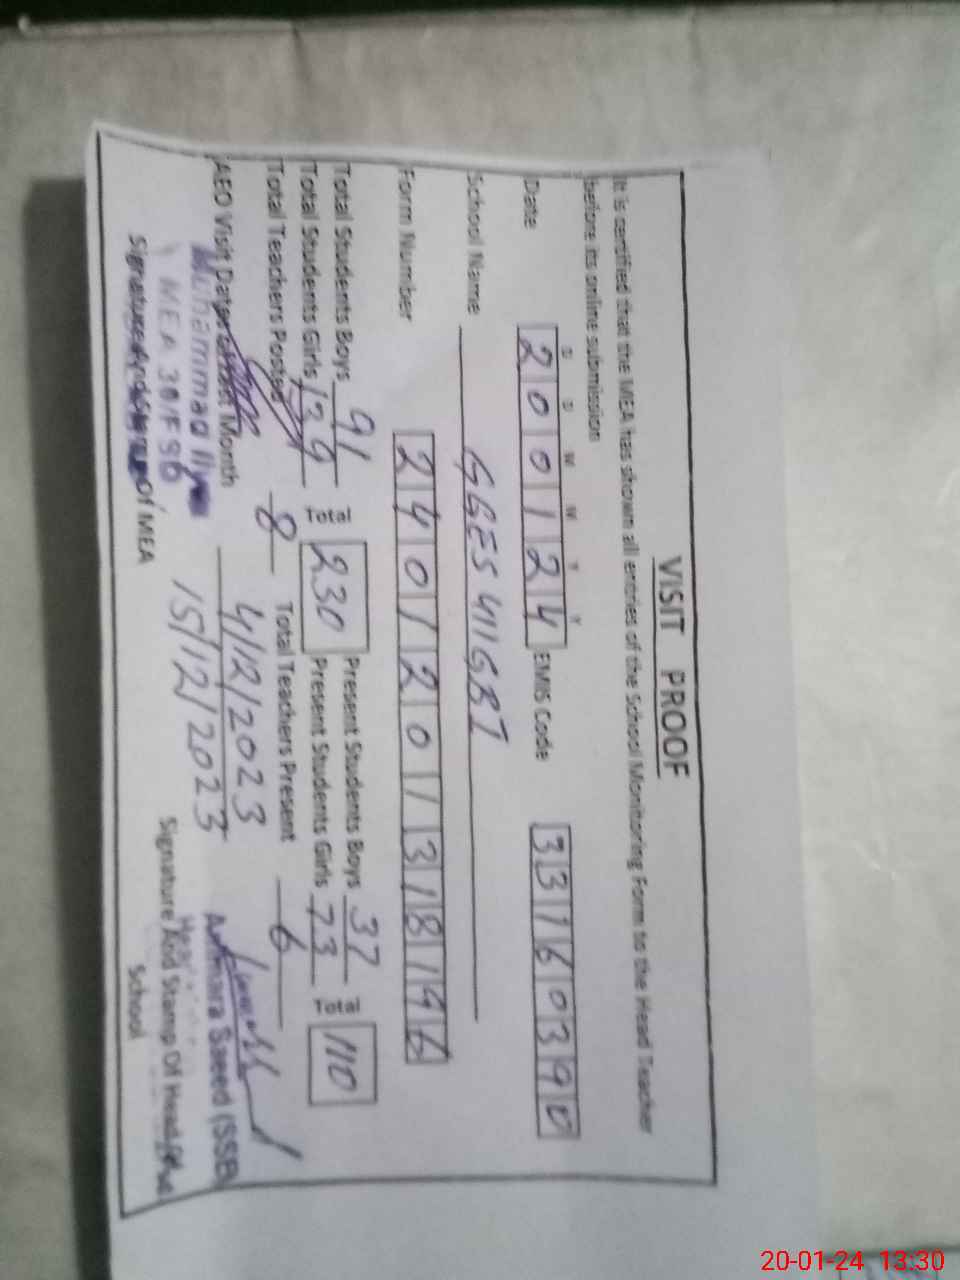 VISIT PROOF
It is certified that the MEA has shown all enteries of the School Monitoring Form to the Head Teacher
before its online submission
D D M M Y Y
Date 200124 EMIS Code 33160390
School Name GGES 411GBI
Form Number 2401201318196
Total Students Boys 91 Total 230 Present Students Boys 37 Total 110
Total Students Girls 139 Present Students Girls 73
Total Teachers Posted 8 Total Teachers Present 6
AEO Visit Dates Of Last Month 4/12/2023
15/12/2023
Muhammad
MEA 30/FSD
Signature And Stamp Of MEA
Ammara Saeed (SSE)
Signature And Stamp Of Head
School
20-01-24 13:30